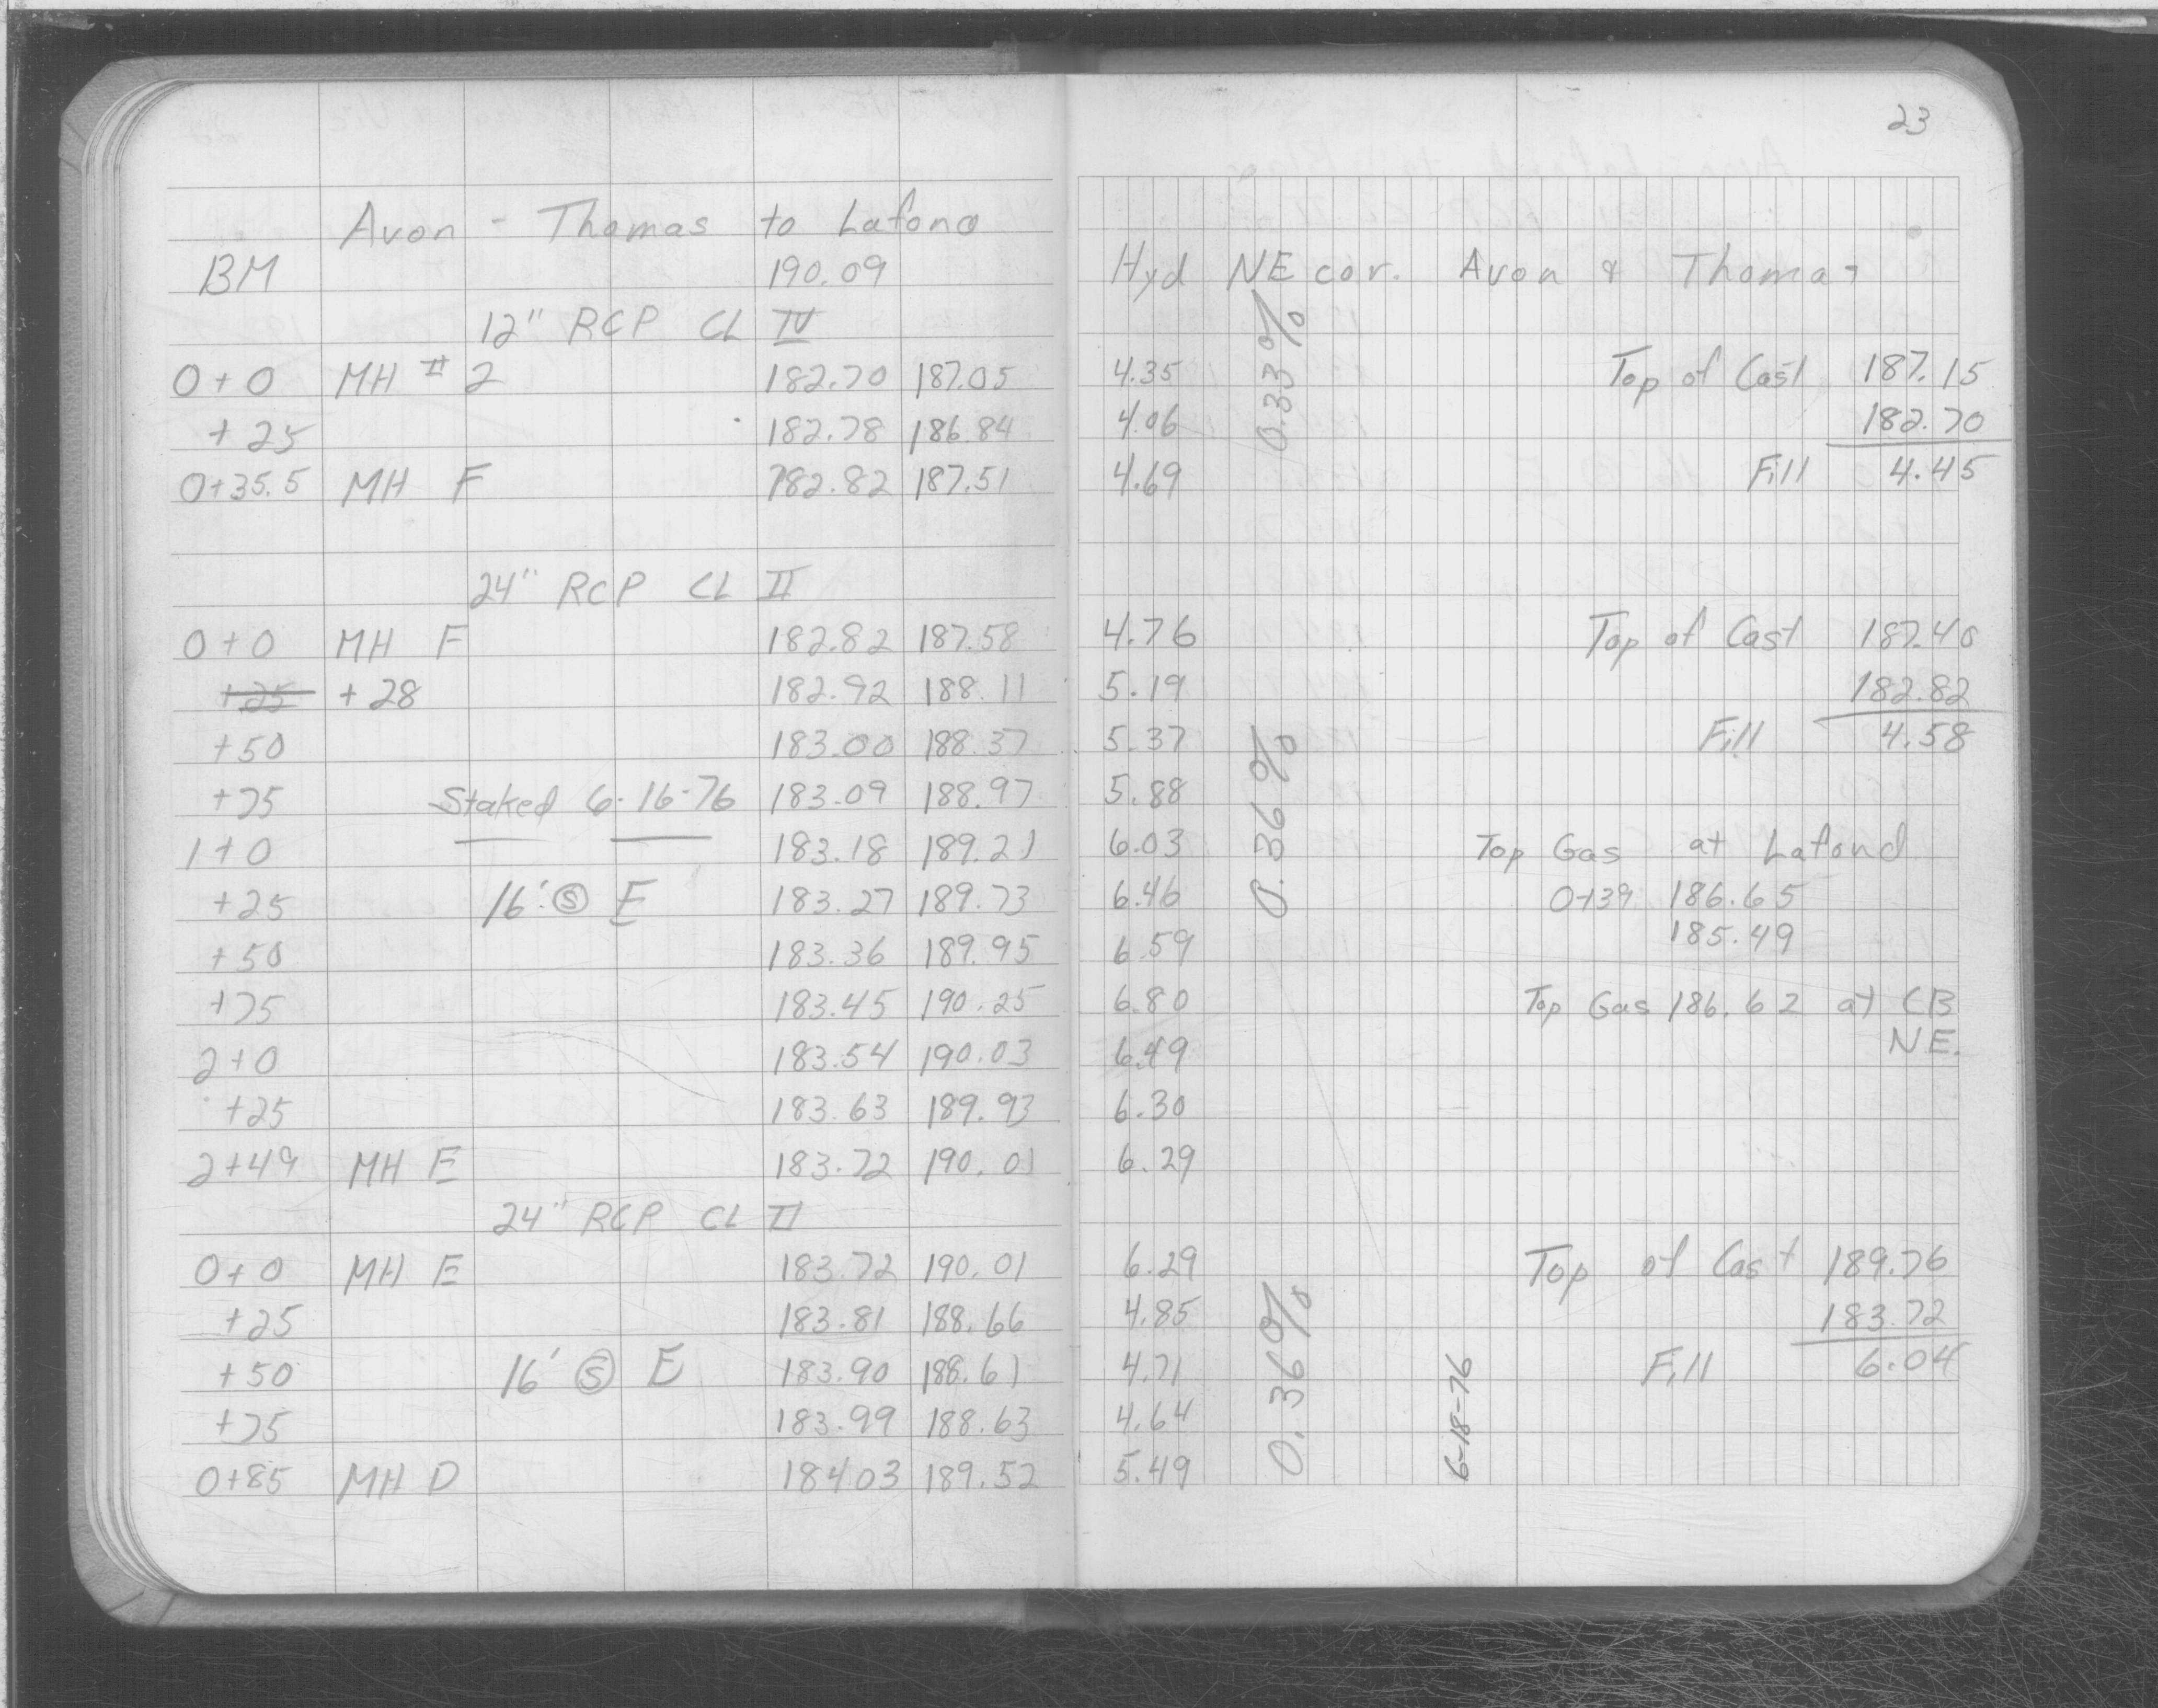 23
Avon - Thomas to Lafond
BM 190.09 Hyd NE cor. Avon & Thomas
12" RCP CL IV
0+0 MH # 2 182.70 187.05 4.35 Top of Cast 187.15
+25 182.78 186.84 4.06 182.70
0+35.5 MH F 182.82 187.51 4.69 Fill 4.45
0.33%
24" RCP CL II
0+0 MH F 182.82 187.58 4.76 Top of Cast 187.40
+25 +28 182.92 188.11 5.19 182.82
+50 183.00 188.37 5.37 Fill 4.58
+75 Staked 6-16-76 183.09 188.97 5.88
1+0 183.18 189.21 6.03 Top Gas at Lafond
+25 16' Ⓢ E 183.27 189.73 6.46 0+39 186.65
+50 183.36 189.95 6.59 185.49
+75 183.45 190.25 6.80 Top Gas 186.62 at CB
2+0 183.54 190.03 6.49 NE.
+25 183.63 189.93 6.30
2+49 MH E 183.72 190.01 6.29
0.36%
24" RCP CL II
0+0 MH E 183.72 190.01 6.29 Top of Cast 189.76
+25 183.81 188.66 4.85 183.72
+50 16' Ⓢ E 183.90 188.61 4.71 Fill 6.04
+75 183.99 188.63 4.64
0+85 MH D 184.03 189.52 5.49
0.36%
6-18-76